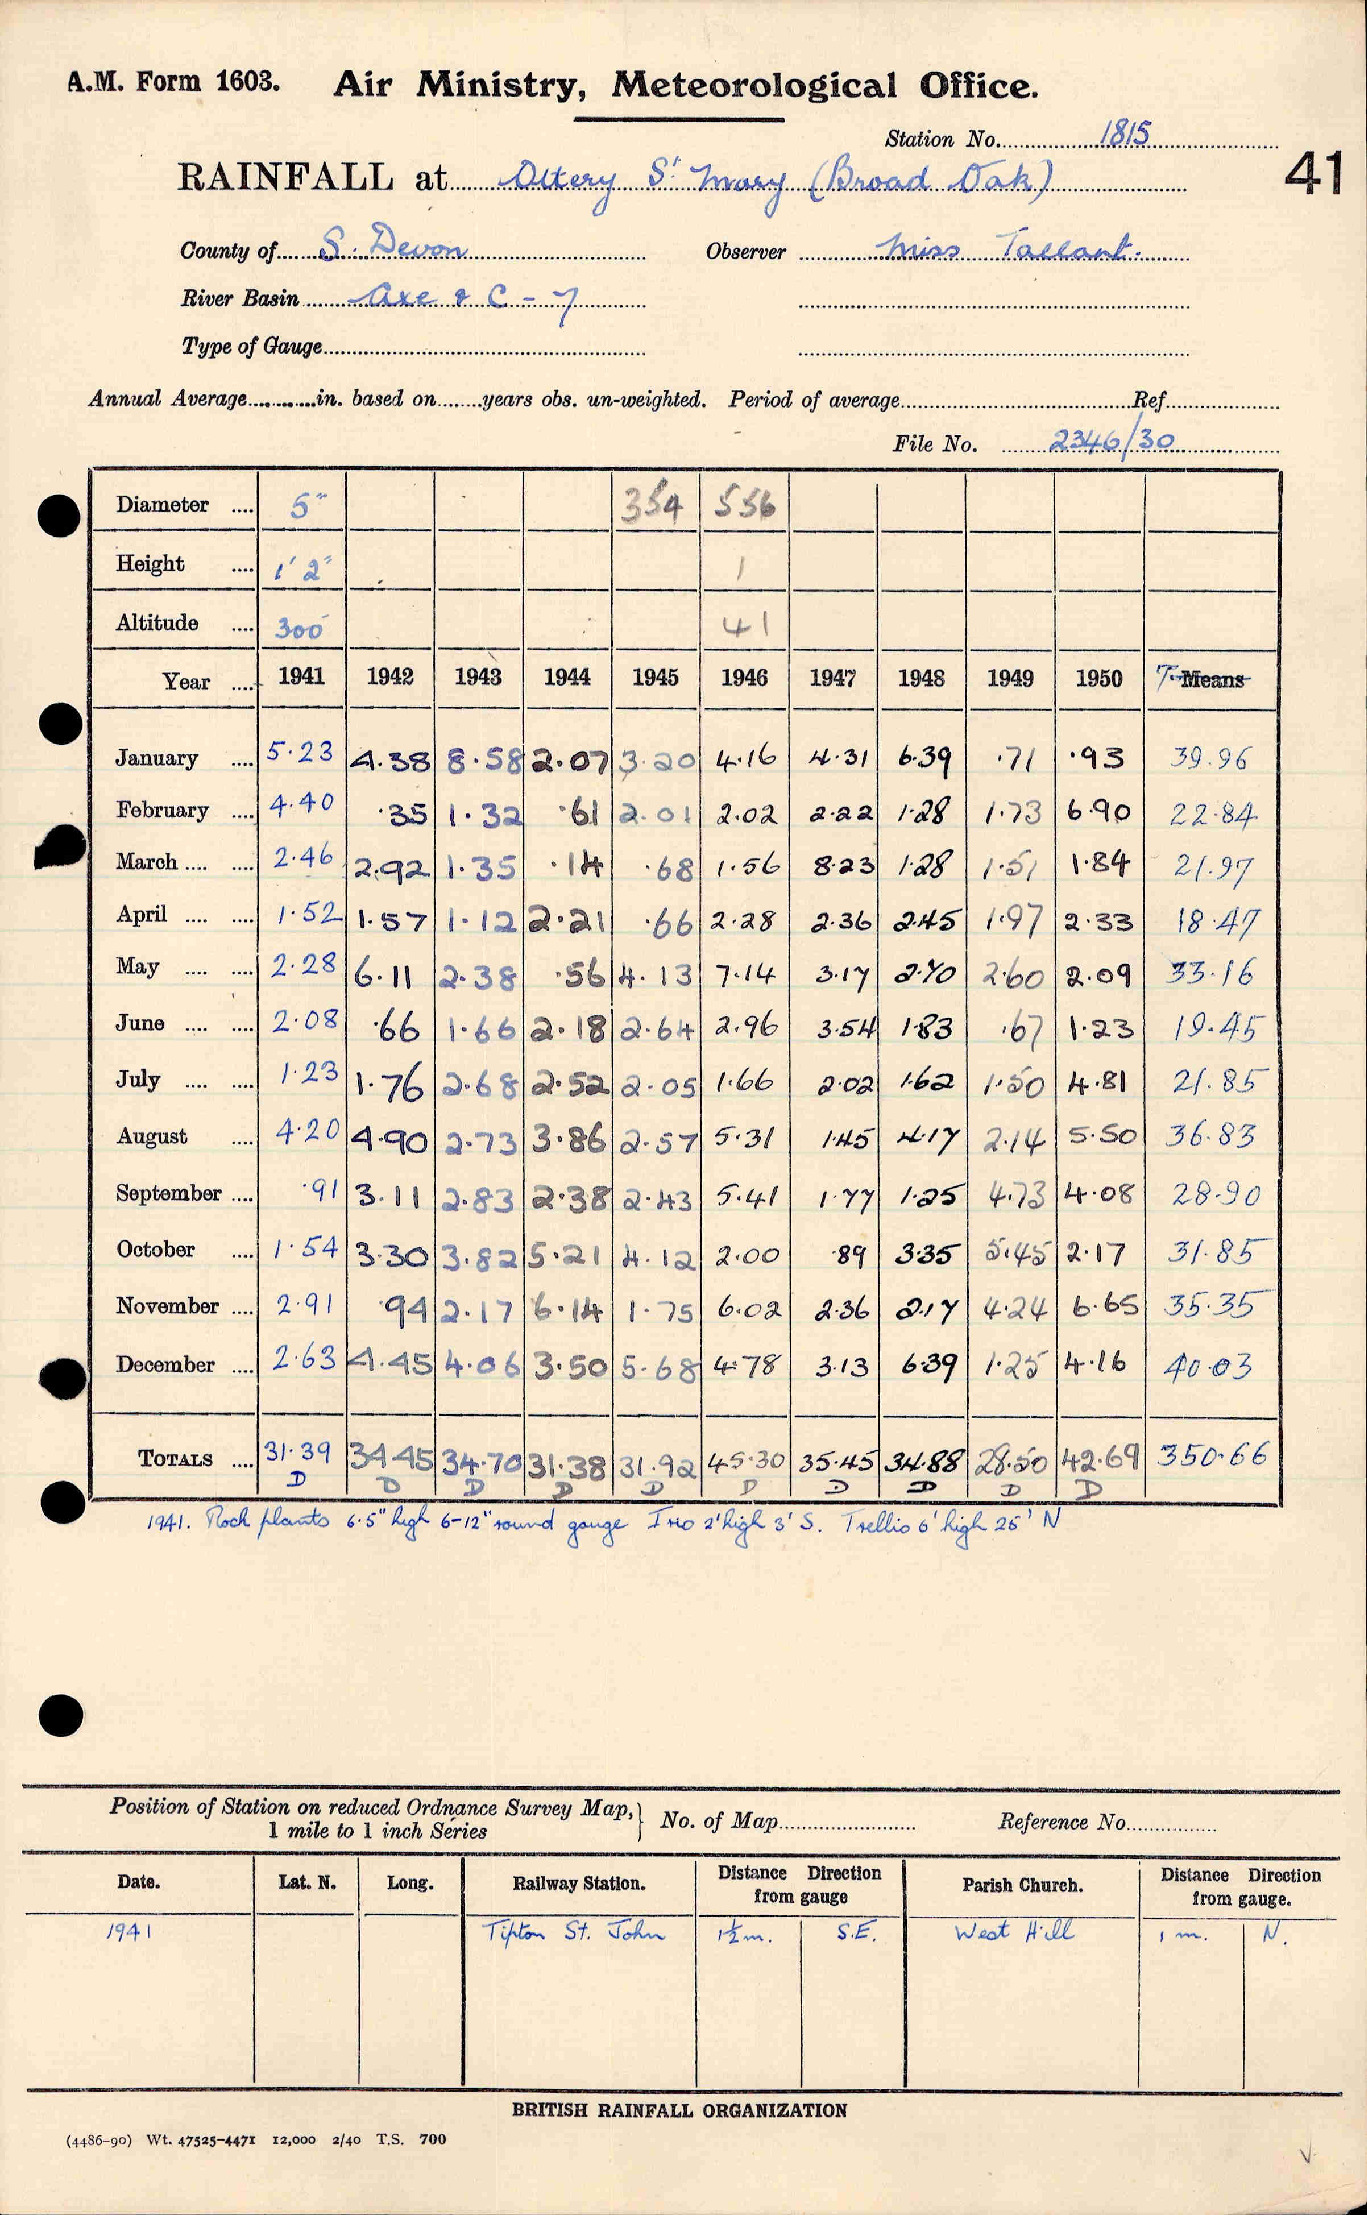 A.M. Form 1603. Air Ministry, Meteorological Office.
Station No. 1815
41
RAINFALL at Ottery St Mary (Broad Oak)
County of S. Devon Observer Miss Tallant.
River Basin Axe & C - 7
Type of Gauge
Annual Average in. based on years obs. un-weighted. Period of average Ref
File No. 2346/30
Diameter 5" 354 556
Height 1' 2" 1
Altitude 300 41
Year 1941 1942 1943 1944 1945 1946 1947 1948 1949 1950 T Means
January 5.23 4.38 8.58 2.07 3.20 4.16 4.31 6.39 .71 .93 39.96
February 4.40 .35 1.32 .61 2.01 2.02 2.22 1.28 1.73 6.90 22.84
March 2.46 2.92 1.35 .14 .68 1.56 8.23 1.28 1.51 1.84 21.97
April 1.52 1.57 1.12 2.21 .66 2.28 2.36 2.45 1.97 2.33 18.47
May 2.28 6.11 2.38 .56 4.13 7.14 3.17 2.70 2.60 2.09 33.16
June 2.08 .66 1.66 2.18 2.64 2.96 3.54 1.83 .67 1.23 19.45
July 1.23 1.76 2.68 2.52 2.05 1.66 2.02 1.62 1.50 4.81 21.85
August 4.20 4.90 2.73 3.86 2.57 5.31 1.45 4.17 2.14 5.50 36.83
September .91 3.11 2.83 2.38 2.43 5.41 1.77 1.25 4.73 4.08 28.90
October 1.54 3.30 3.82 5.21 4.12 2.00 .89 3.35 5.45 2.17 31.85
November 2.91 .94 2.17 6.14 1.75 6.02 2.36 2.17 4.24 6.65 35.35
December 2.63 4.45 4.06 3.50 5.68 4.78 3.13 6.39 1.25 4.16 40.03
TOTALS 31.39 34.45 34.70 31.38 31.92 45.30 35.45 34.88 28.50 42.69 350.66
D D D D D D D D D D
1941. Rock plants 6.5" high 6-12" round gauge Iris 2' high 3' S. Trellis 6' high 25' N
Position of Station on reduced Ordnance Survey Map, } No. of Map Reference No.
1 mile to 1 inch Series
Date. Lat. N. Long. Railway Station. Distance Direction from gauge Parish Church. Distance Direction from gauge.
1941 Tipton St. John 1½m. S.E. West Hill 1 m. N.
BRITISH RAINFALL ORGANIZATION
(4486-90) Wt. 47525-4471 12,000 2/40 T.S. 700